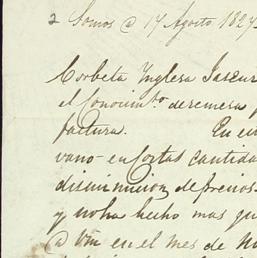 2 Somos @ 17 Agosto 1827
Corbeta Inglesa
el Conocim.to de remesa
factura. En
vano en cortas cantida
disminucion de precios.
y no ha hecho mas que
@ Vm en el mes de